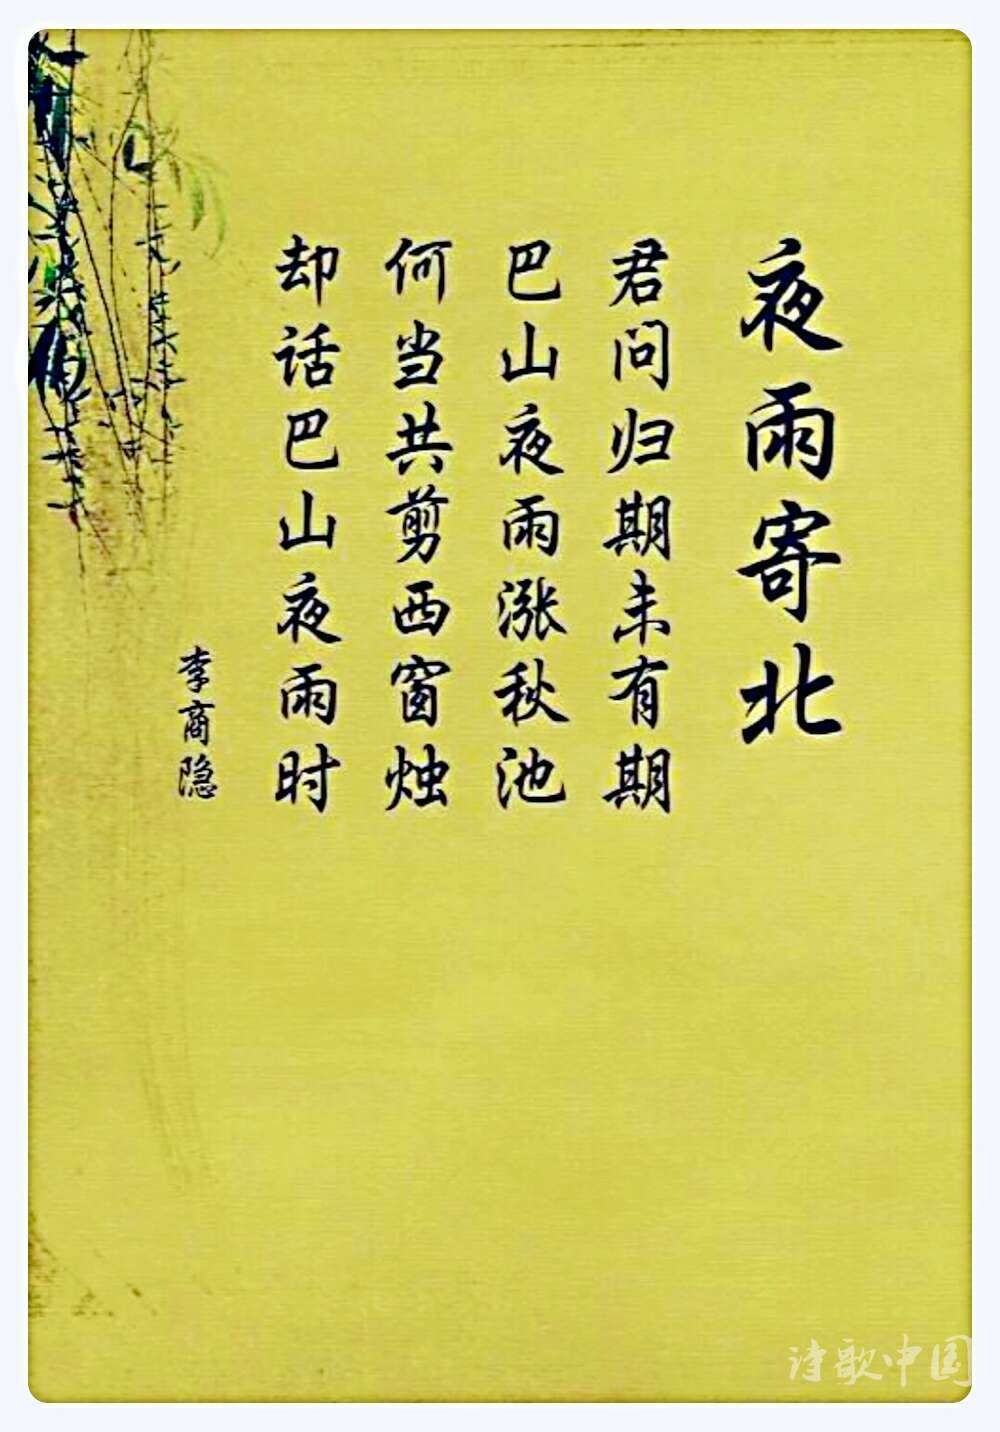 夜雨寄北
君问归期未有期
巴山夜雨涨秋池
何当共剪西窗烛
却话巴山夜雨时
李商隐
诗歌中国